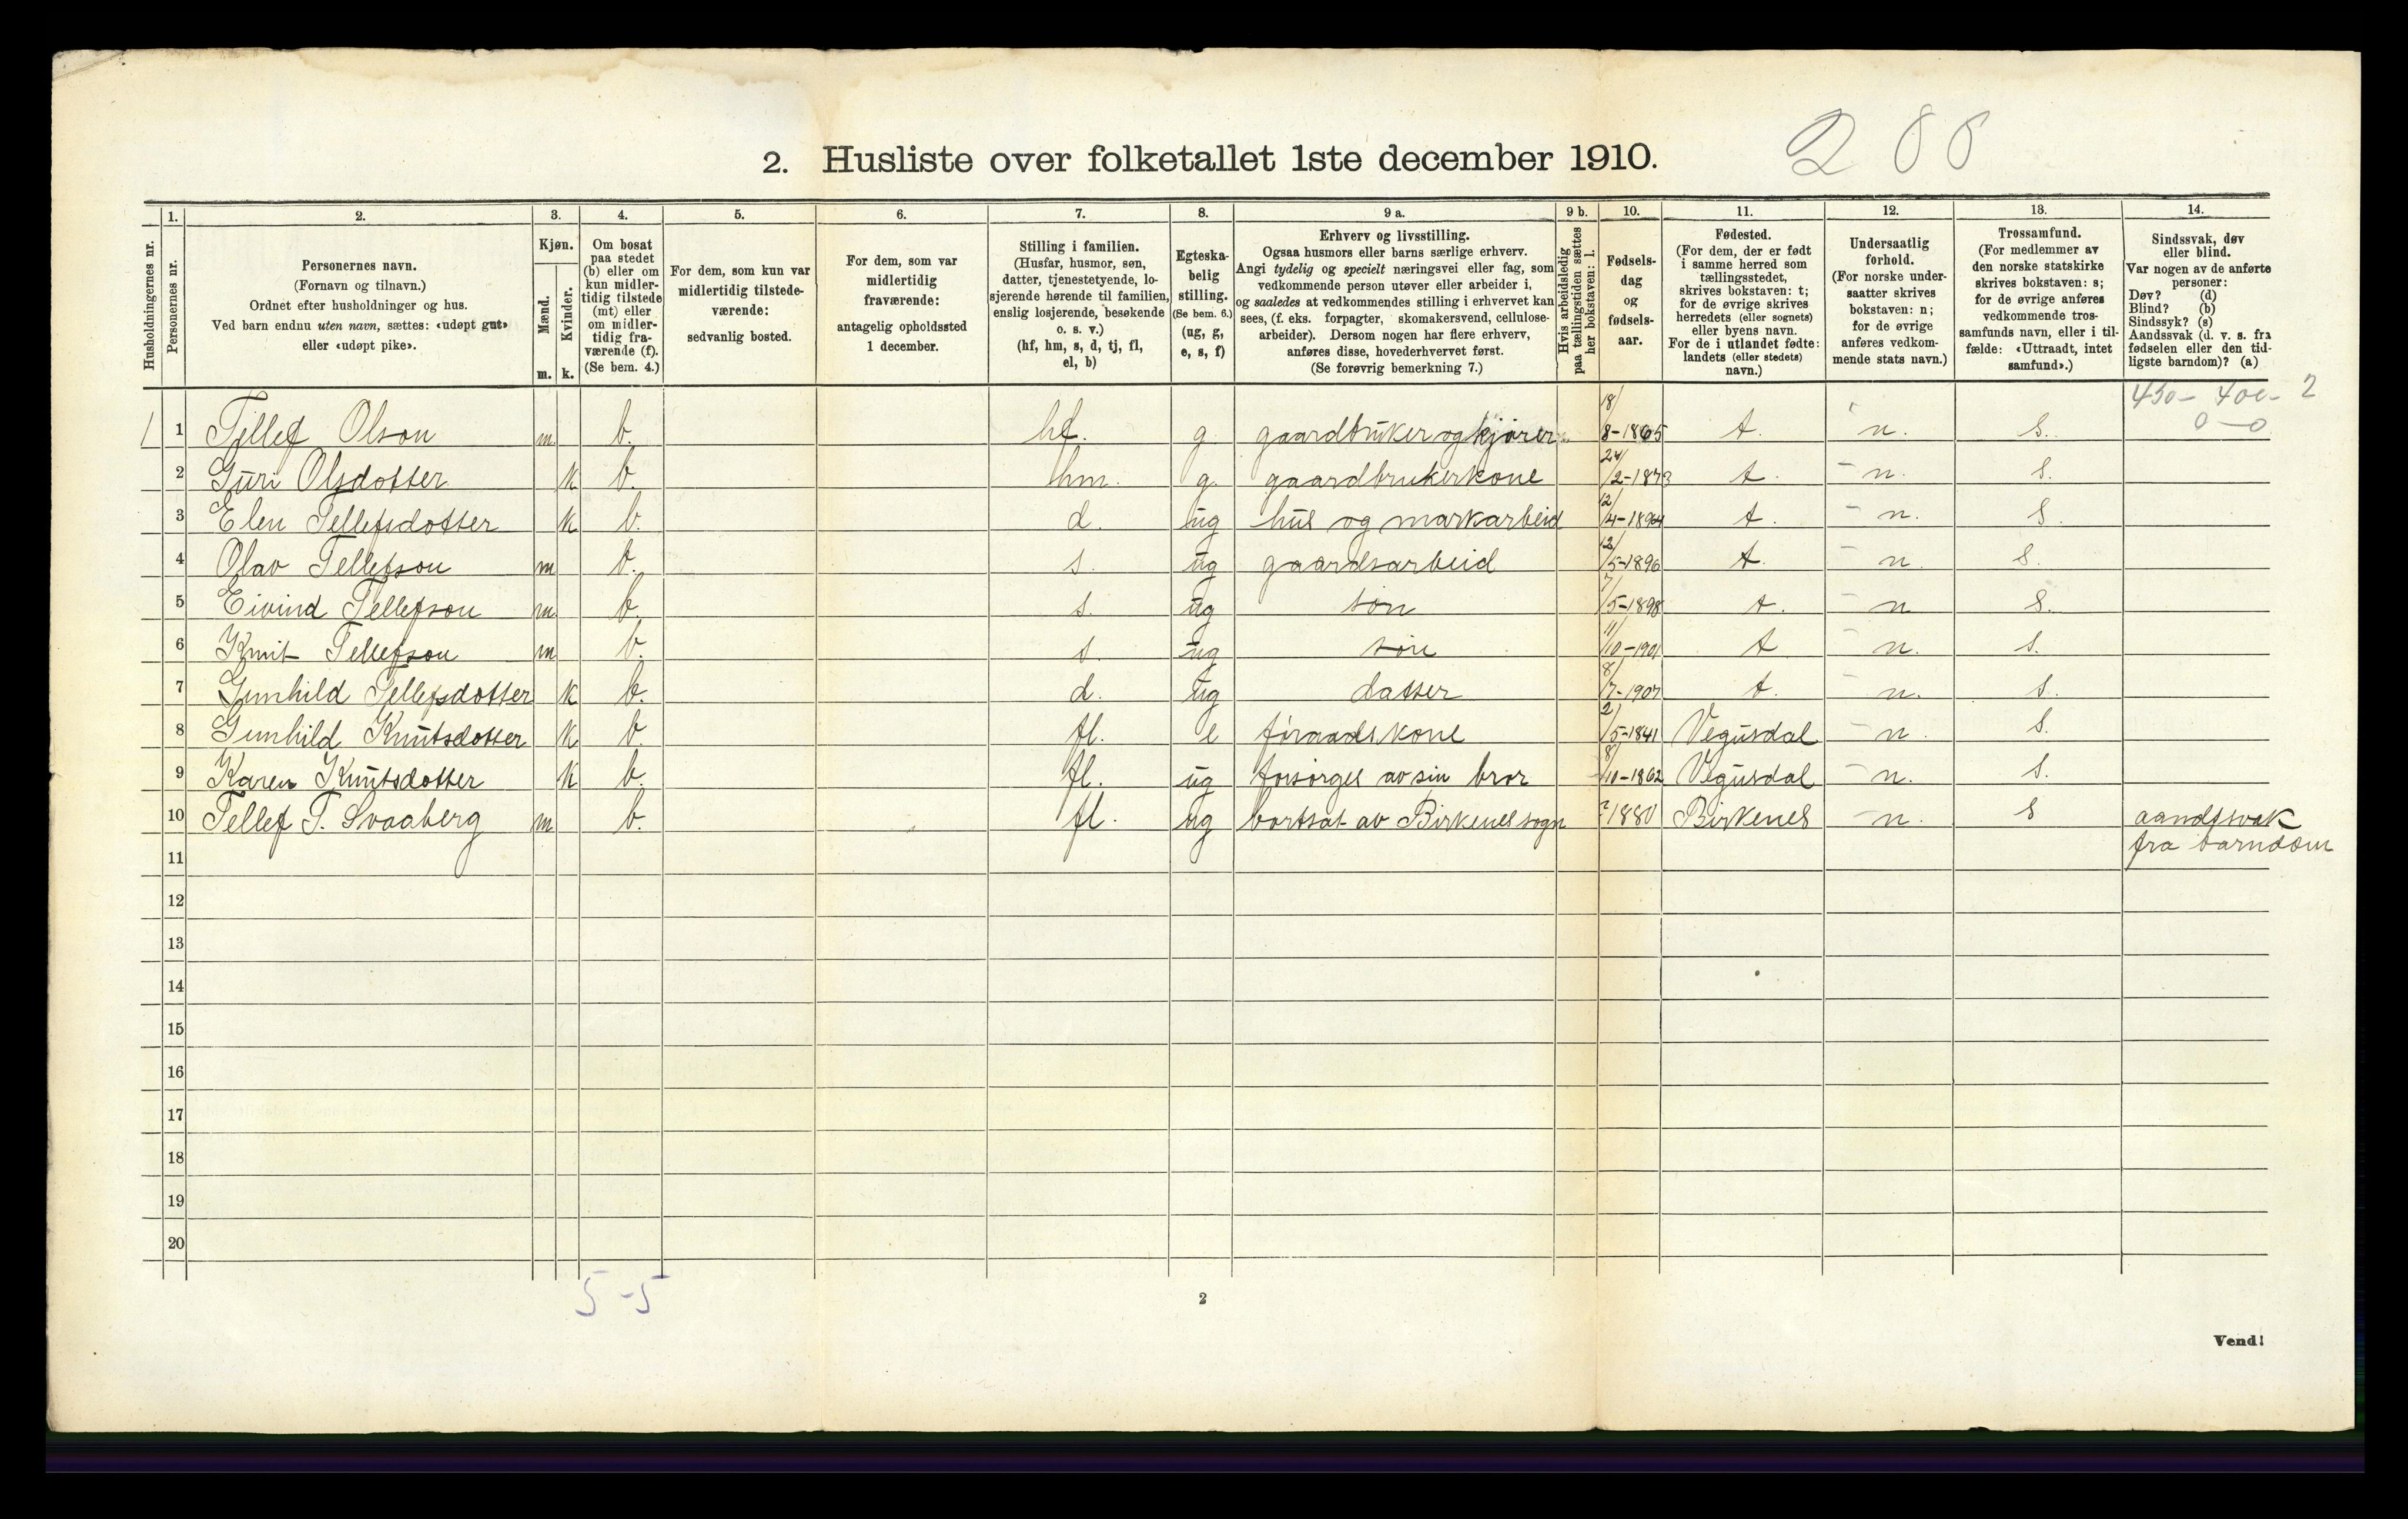 2. Husliste over folketallet 1ste december 1910.
288
Husholdningernes nr.
1. Personernes nr.
2. Personernes navn.
(Fornavn og tilnavn.)
Ordnet efter husholdninger og hus.
Ved barn endnu uten navn, sættes: «udøpt gut»
eller «udøpt pike».
3. Kjøn.
Mænd. Kvinder.
m. k.
4. Om bosat
paa stedet
(b) eller om
kun midler-
tidig tilstede
(mt) eller
om midler-
tidig fra-
værende (f).
(Se bem. 4.)
5. For dem, som kun var
midlertidig tilstede-
værende:
sedvanlig bosted.
6. For dem, som var
midlertidig
fraværende:
antagelig opholdssted
1 december.
7. Stilling i familien.
(Husfar, husmor, søn,
datter, tjenestetyende, lo-
sjerende hørende til familien,
enslig losjerende, besøkende
o. s. v.)
(hf, hm, s, d, tj, fl,
el, b)
8. Egteska-
belig
stilling.
(Se bem. 6.)
(ug, g,
e, s, f)
9 a. Erhverv og livsstilling.
Ogsaa husmors eller barns særlige erhverv.
Angi tydelig og specielt næringsvei eller fag, som
vedkommende person utøver eller arbeider i,
og saaledes at vedkommendes stilling i erhvervet kan
sees, (f. eks. forpagter, skomakersvend, cellulose-
arbeider). Dersom nogen har flere erhverv,
anføres disse, hovederhvervet først.
(Se forøvrig bemerkning 7.)
9 b. Hvis arbeidsledig
paa tællingstiden sættes
her bokstaven: l.
10. Fødsels-
dag
og
fødsels-
aar.
11. Fødested.
(For dem, der er født
i samme herred som
tællingsstedet,
skrives bokstaven: t;
for de øvrige skrives
herredets (eller sognets)
eller byens navn.
For de i utlandet fødte:
landets (eller stedets)
navn.)
12. Undersaatlig
forhold.
(For norske under-
saatter skrives
bokstaven: n;
for de øvrige
anføres vedkom-
mende stats navn.)
13. Trossamfund.
(For medlemmer av
den norske statskirke
skrives bokstaven: s;
for de øvrige anføres
vedkommende tros-
samfunds navn, eller i til-
fælde: «Uttraadt, intet
samfund».)
14. Sindssvak, døv
eller blind.
Var nogen av de anførte
personer:
Døv? (d)
Blind? (b)
Sindssyk? (s)
Aandssvak (d. v. s. fra
fødselen eller den tid-
ligste barndom)? (a)
450- 400- 2
0-0
1 1 Tellef Olson m b. hf. g gaardbruker og kjører 18/8-1865 t. n. s.
2 Guri Olsdotter k b. hm. g. gaardbrukerkone 24/2-1873 t. n. s.
3 Elen Tellefsdotter k b. d. ug hus og markarbeid 12/4-1894 t. n. s.
4 Olav Tellefson m b. s. ug gaardsarbeid 12/5-1896 t. n. s.
5 Eivind Tellefson m b. s. ug søn 7/5-1898 t. n s.
6 Knut Tellefson m b. s. ug søn 11/10-1901 t n. s.
7 Gunhild Tellefsdotter k b. d. ug datter 8/7-1907 t. n. s.
8 Gunhild Knutsdotter k b. fl. e føraadskone 2/5-1841 Vegusdal n. s.
9 Karen Knutsdotter k b. fl. ug forsørges av sin bror 8/10-1862 Vegusdal n. s.
10 Tellef T. Svaaberg m b. fl. ug bortsat av Birkenes sogn ?1880 Birkenes n. s aandssvak
11 fra barndom
12
13
14
15
16
17
18
19
20
5-5
2
Vend!